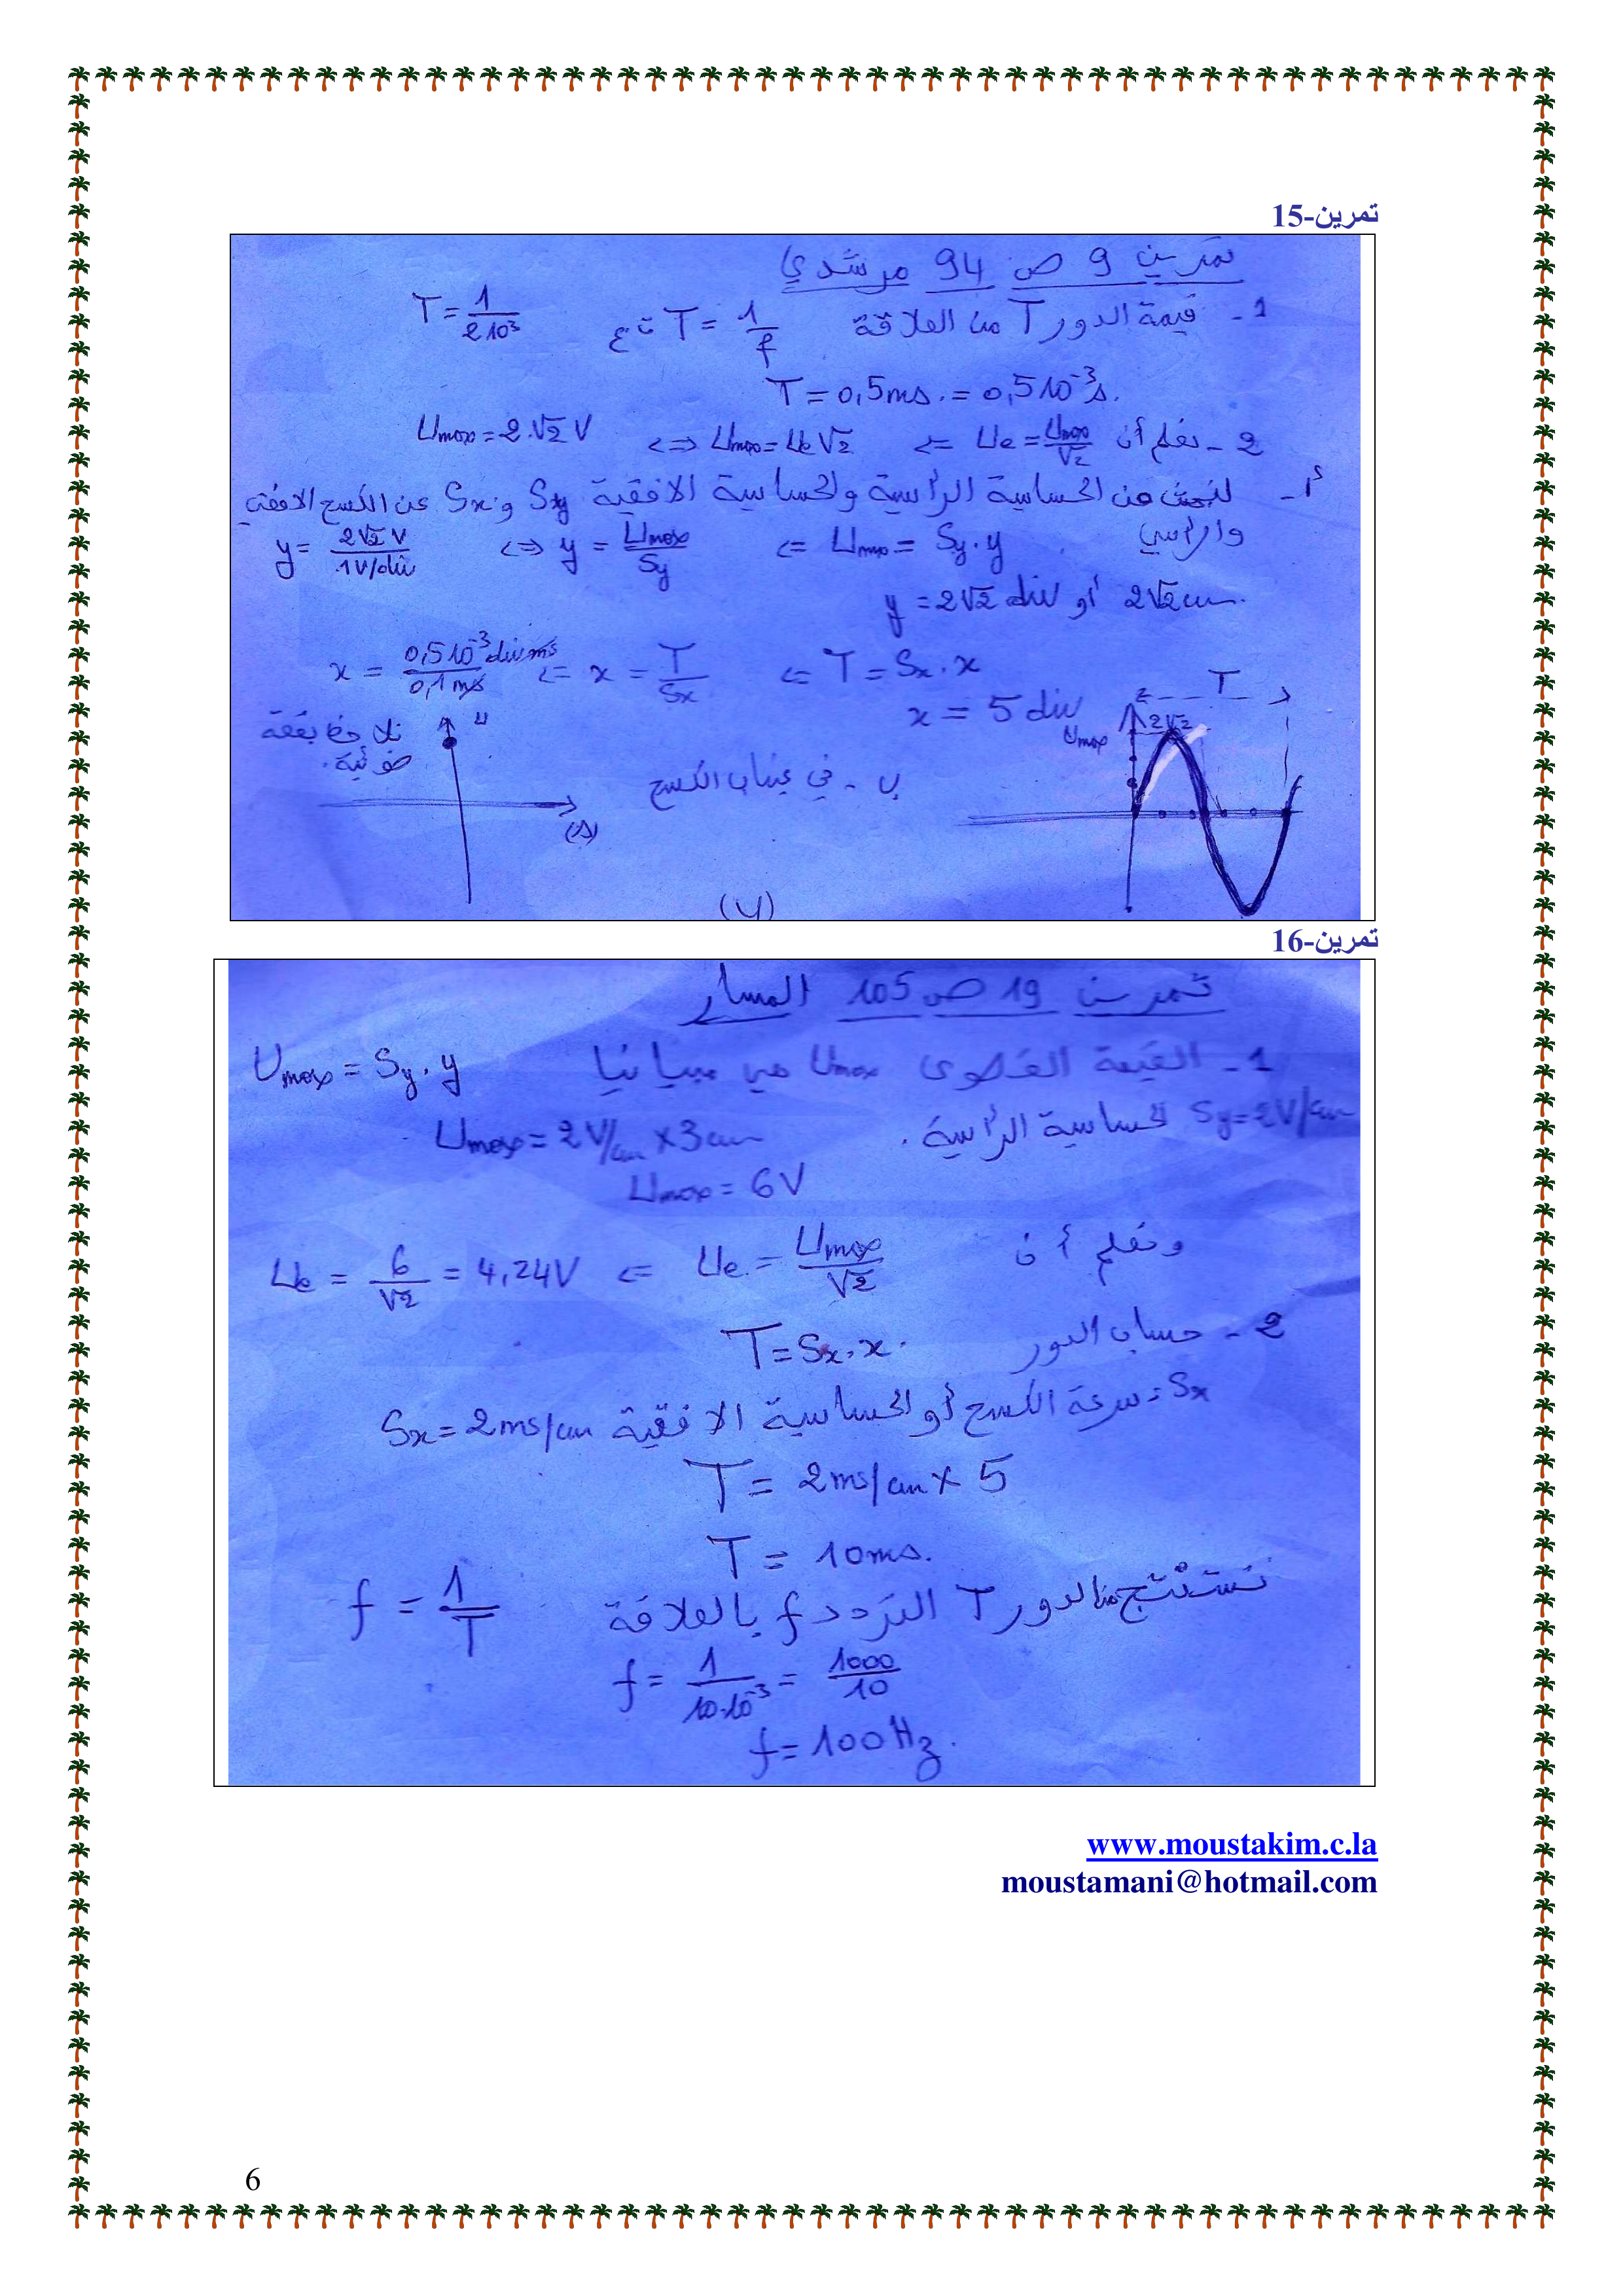 تمرين-15
تمرين 9 ص 94 مرشدي
1 - قيمة الدور T من العلاقة T = 1/f ت ع T = 1/2 10³
T = 0,5ms. = 0,5 10⁻³s.
2 - نعلم أن Ue = Umax/√2 ⇐ Umax = Ue√2 ⇔ Umax = 2.√2 V
أ - لنبحث عن الحساسية الرأسية والحساسية الافقية Sy و Sx عن الكسح الافقي
والرأسي Umax = Sy.y ⇐ y = Umax/Sy ⇔ y = 2√2 V/1V/div
y = 2√2 div أو 2√2 cm.
T = Sx.x ⇐ x = T/Sx ⇐ x = 0,5 10⁻³ div ms/0,1 ms
x = 5 div
T
Umax 2√2
ب - في غياب الكسح
نلاحظ بقعة
ضوئية.
u
(s)
(4)
تمرين-16
تمرين 19 ص 105 المسار
1 - القيمة القصوى Umax هي مبيانيا Umax = Sy.y
Sy = 2V/cm الحساسية الرأسية .
Umax = 2V/cm x 3cm
Umax = 6V
ونعلم أن Ue = Umax/√2 ⇐ Ue = 6/√2 = 4,24V
2 - حساب الدور T = Sx.x.
Sx = سرعة الكسح أو الحساسية الافقية Sx = 2ms/cm
T = 2ms/cm x 5
T = 10ms.
نستنتج من الدور T التردد f بالعلاقة f = 1/T
f = 1/10.10⁻³ = 1000/10
f = 100Hz.
www.moustakim.c.la
moustamani@hotmail.com
6